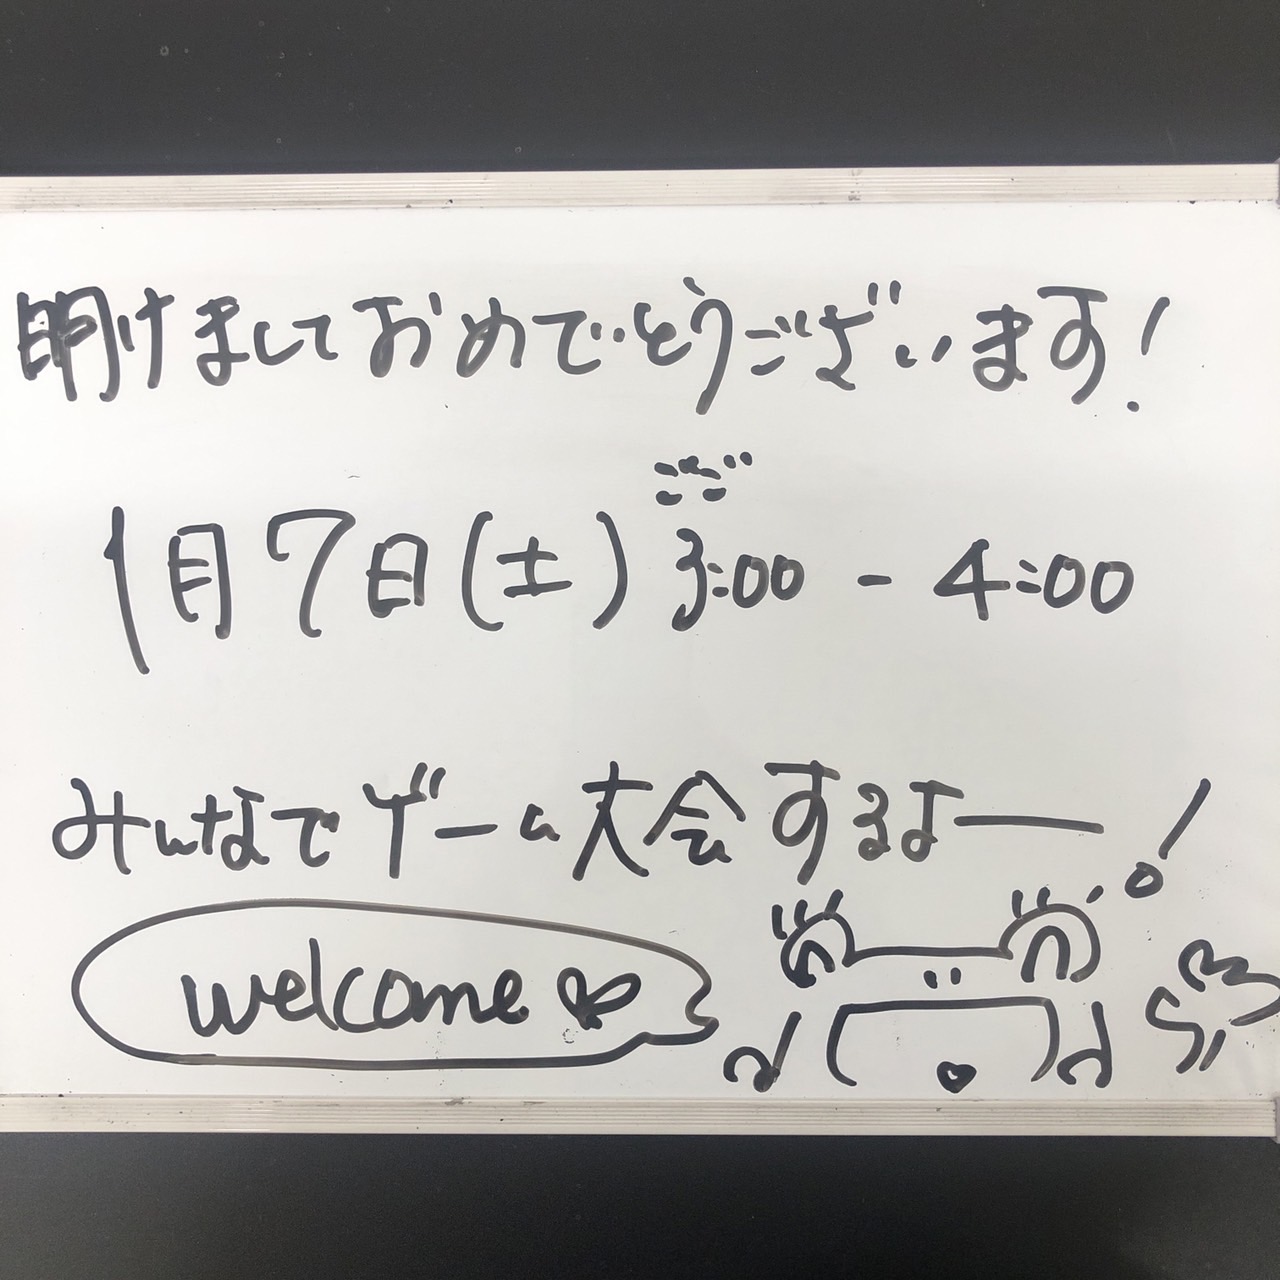 明けましておめでとうございます!
ごご
1月7日(土) 3:00 - 4:00
みんなでゲーム大会するよー!
welcome